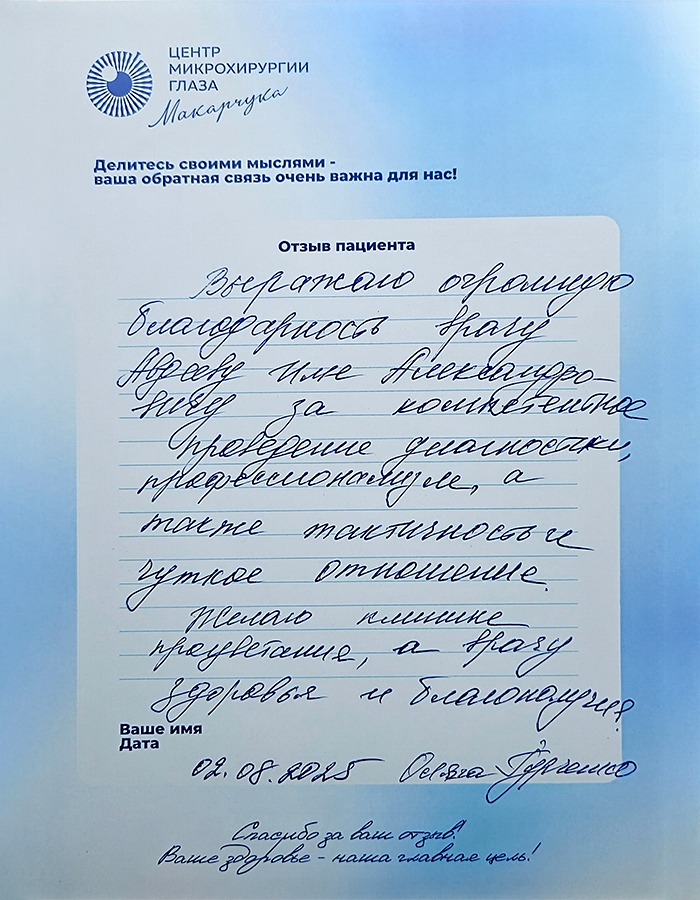 ЦЕНТР
МИКРОХИРУРГИИ
ГЛАЗА
Макарчука
Делитесь своими мыслями -
ваша обратная связь очень важна для нас!
Отзыв пациента
Выражаю огромную
благодарность врачу
Авдееву Илье Александро-
вичу за компетентное
проведение диагностики,
профессионализм, а
также тактичность и
чуткое отношение.
Желаю клинике
процветания, а врачу
здоровья и благополучия
Ваше имя
Дата
02.08.2025
Спасибо за ваш отзыв!
Ваше здоровье - наша главная цель!